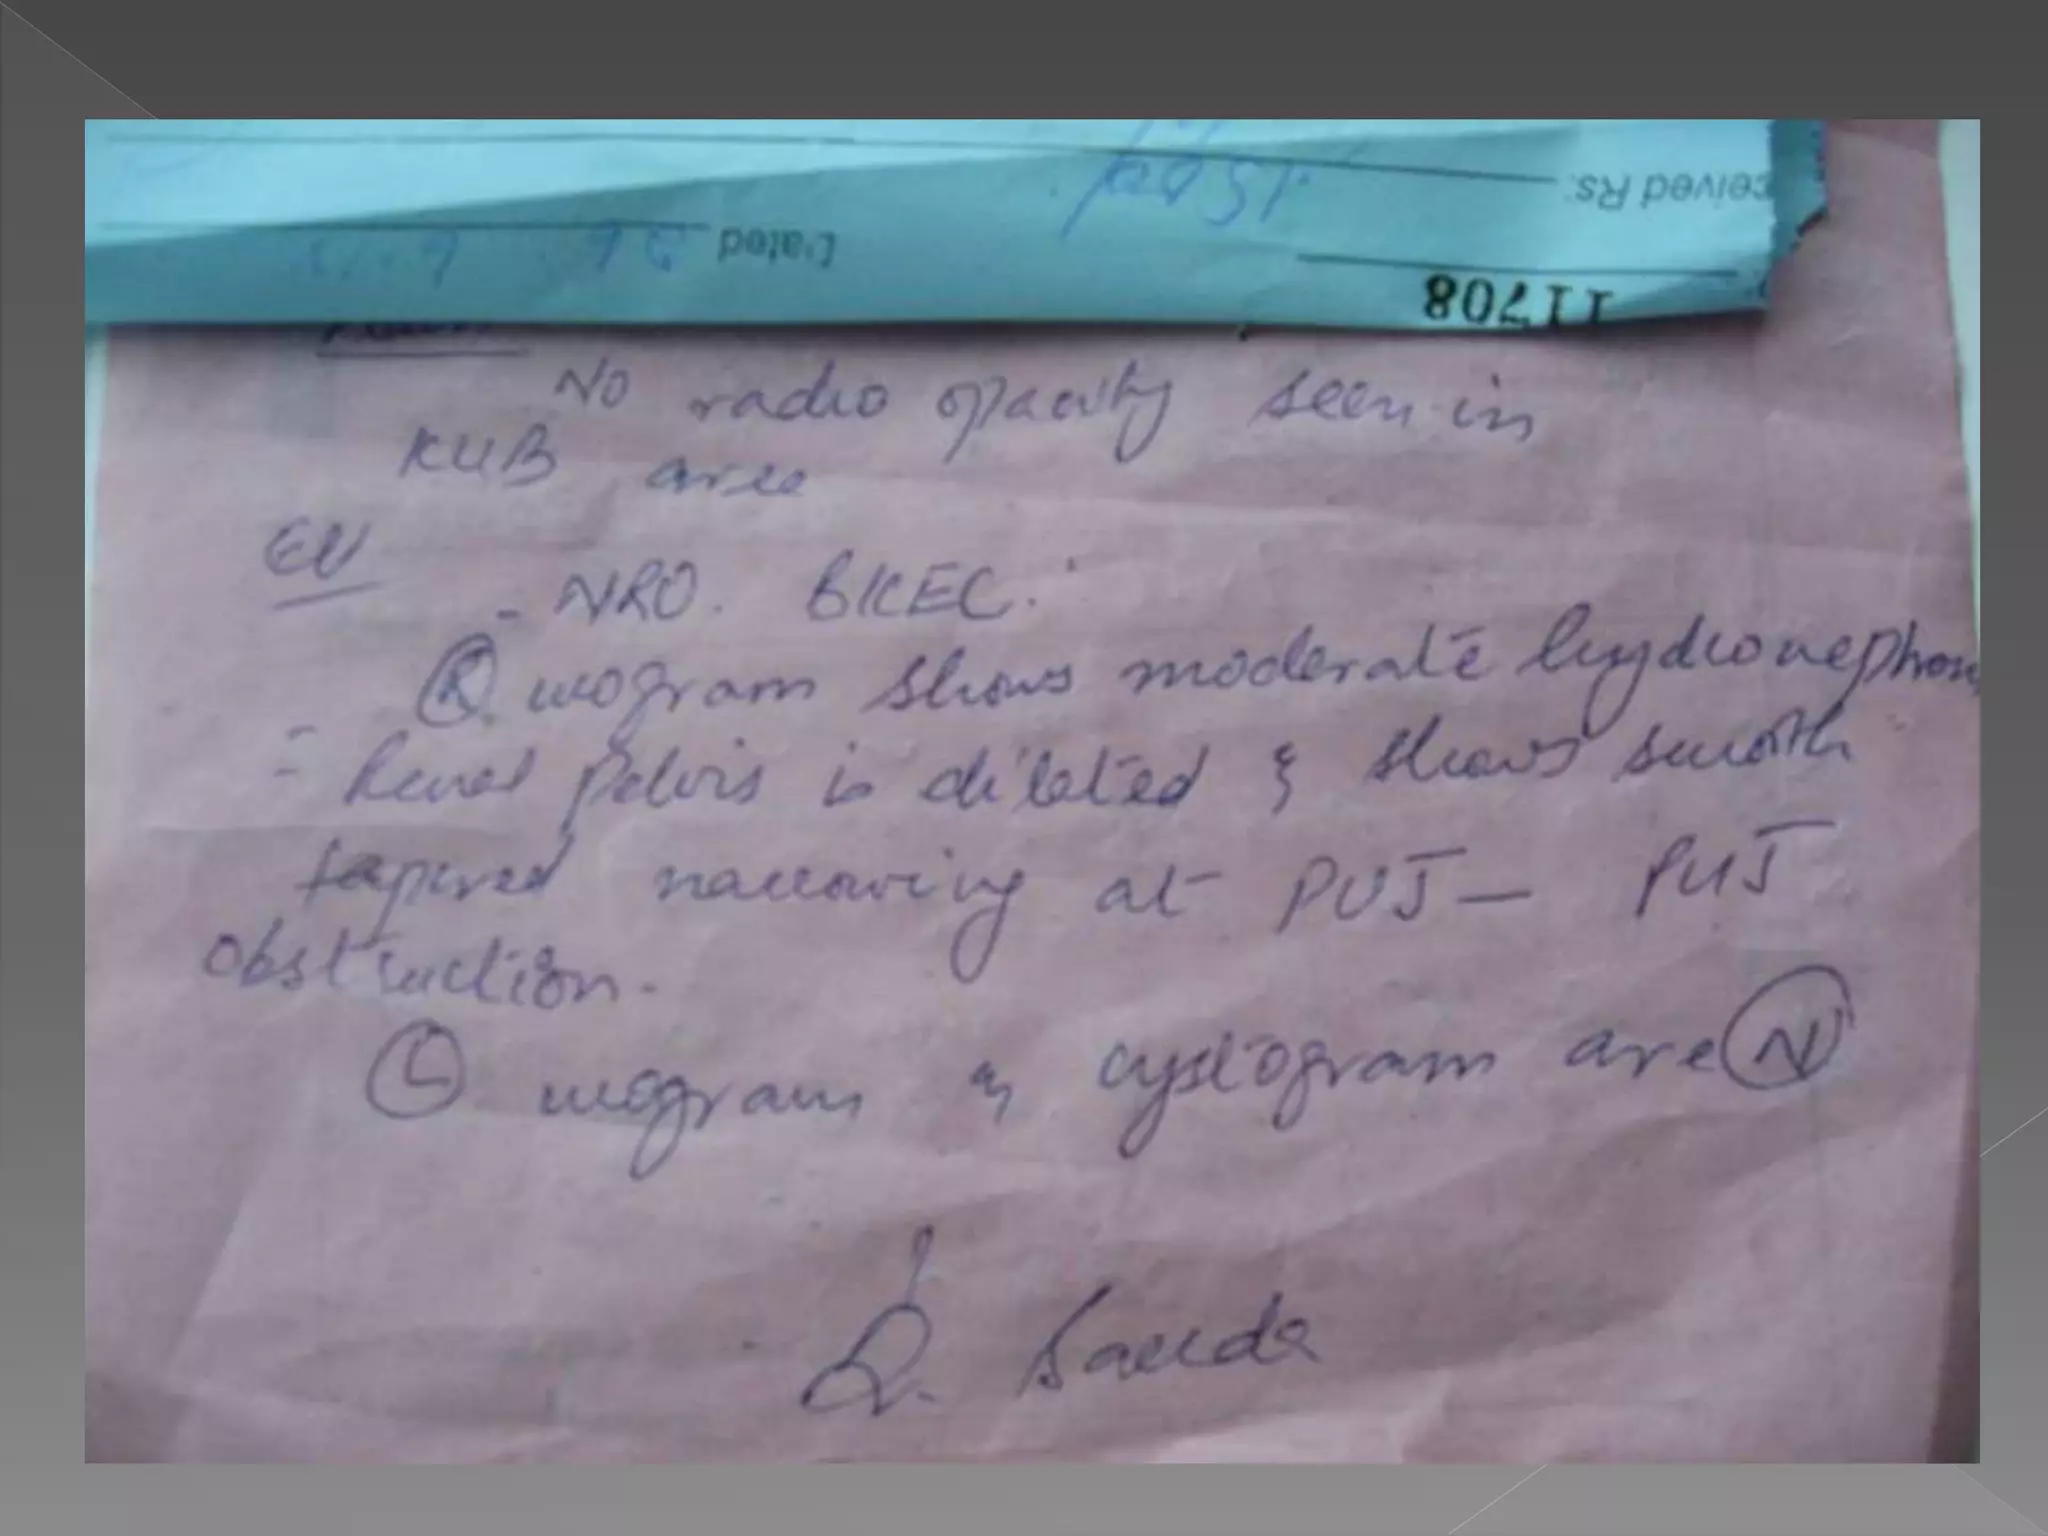 ceived Rs.
Dated
11708
No radio opacity seen in
KUB area
EU
- NRO. BKEC.
Ⓡ urogram shows moderate hydronephron
= Renal pelvis is dilated & shows smooth
tapered narrowing at PUJ — PUJ
obstruction.
Ⓛ urogram & cystogram are Ⓝ
Dr. Sauda